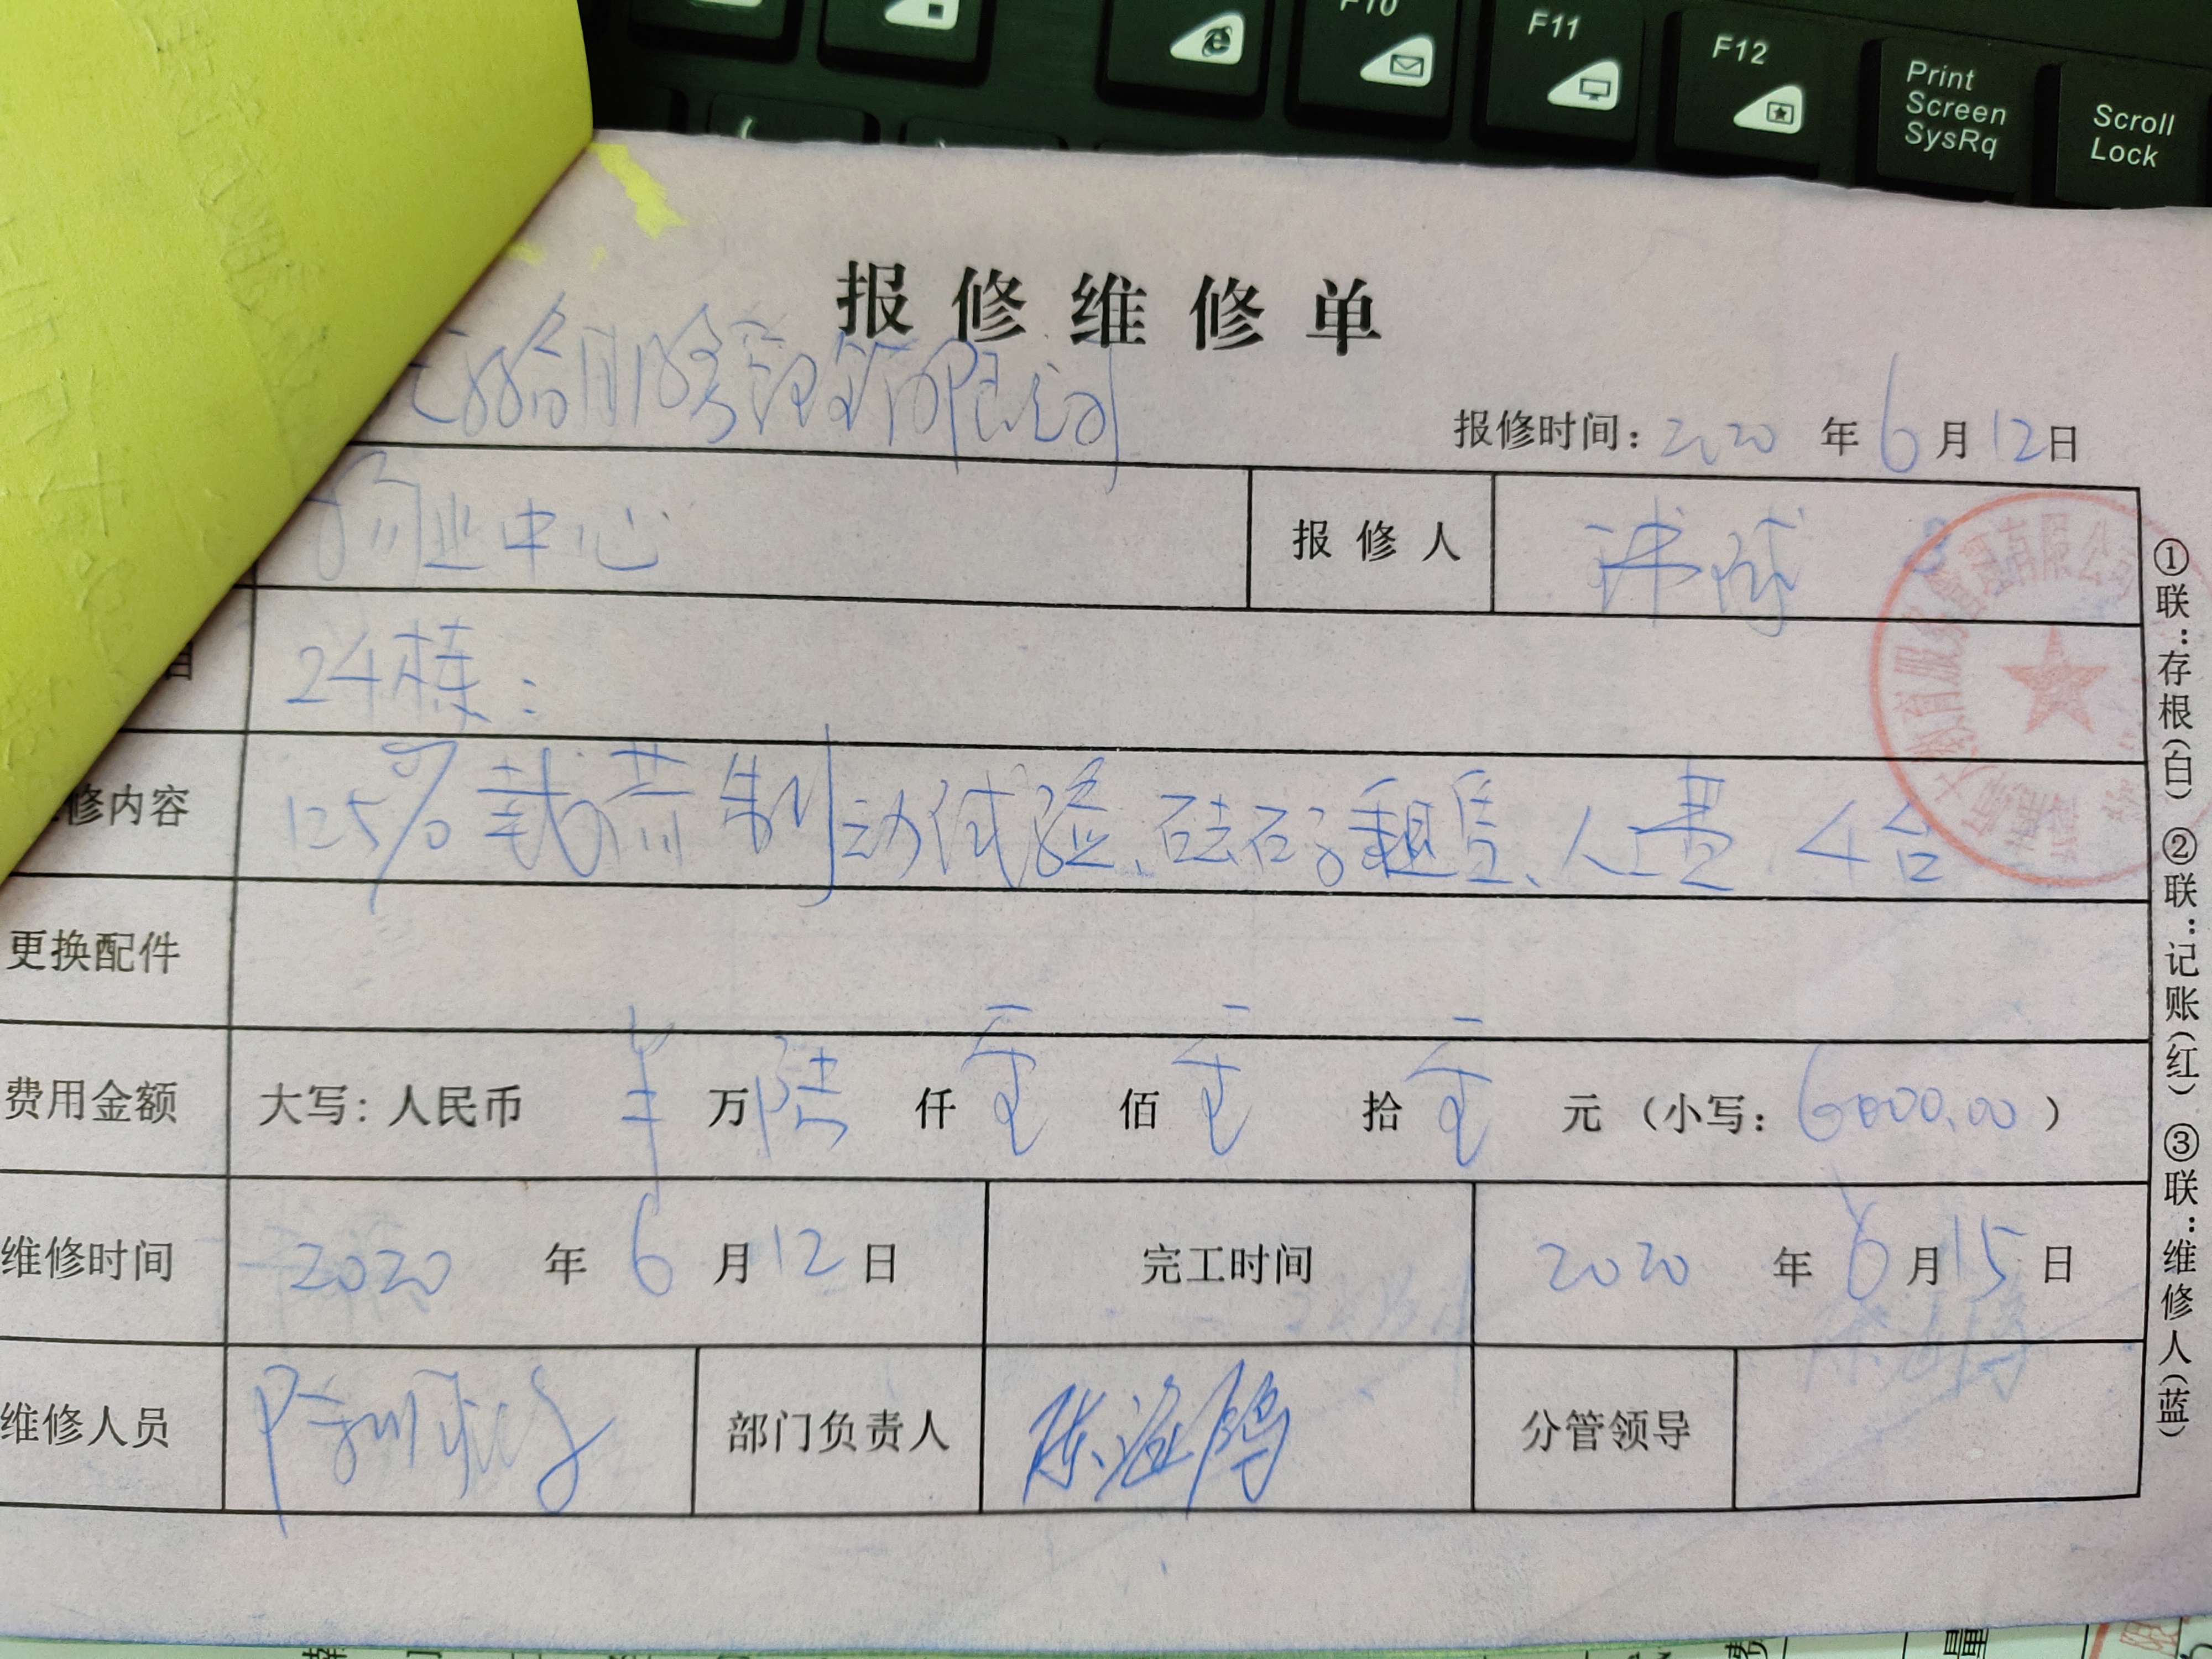 F10
F11
F12
Print
Screen
SysRq
Scroll
Lock
报修维修单
服务管理有限公司
报修时间：2020年6月12日
药业中心
报修人
24栋：
修内容
125%载荷制动试验、砝码租赁、人工费 4台
更换配件
费用金额
大写：人民币 ¥ 万 陆 仟 零 佰 零 拾 零 元（小写：6000.00）
维修时间
2020年6月12日
完工时间
2020年6月15日
维修人员
部门负责人
分管领导
①联：存根（白）②联：记账（红）③联：维修人（蓝）
服务管理有限公司